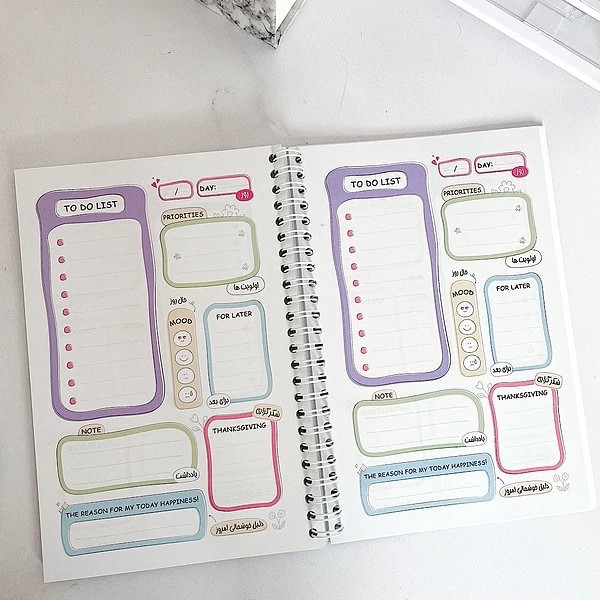 /
DAY:
روز
TO DO LIST
PRIORITIES
اولویت ها
حال روز
MOOD
FOR LATER
برای بعد
NOTE
یادداشت
شکرگزاری
THANKSGIVING
THE REASON FOR MY TODAY HAPPINESS!
دلیل خوشحالی امروز
/
DAY:
روز
TO DO LIST
PRIORITIES
اولویت ها
حال روز
MOOD
FOR LATER
برای بعد
NOTE
یادداشت
شکرگزاری
THANKSGIVING
THE REASON FOR MY TODAY HAPPINESS!
دلیل خوشحالی امروز